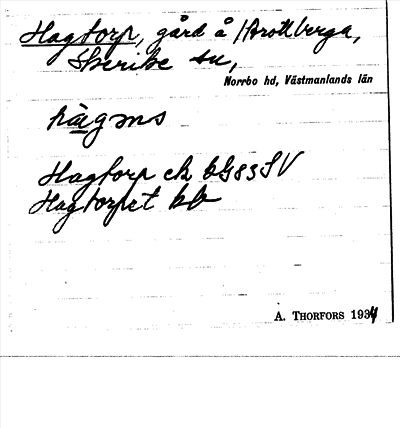 Hagtorp, gård å Brottberga,
Skerike sn,
Norrbo hd, Västmanlands län
hägɔns
Hagtorp ek bG83SV
Hagtorpet bb
A. THORFORS 1934